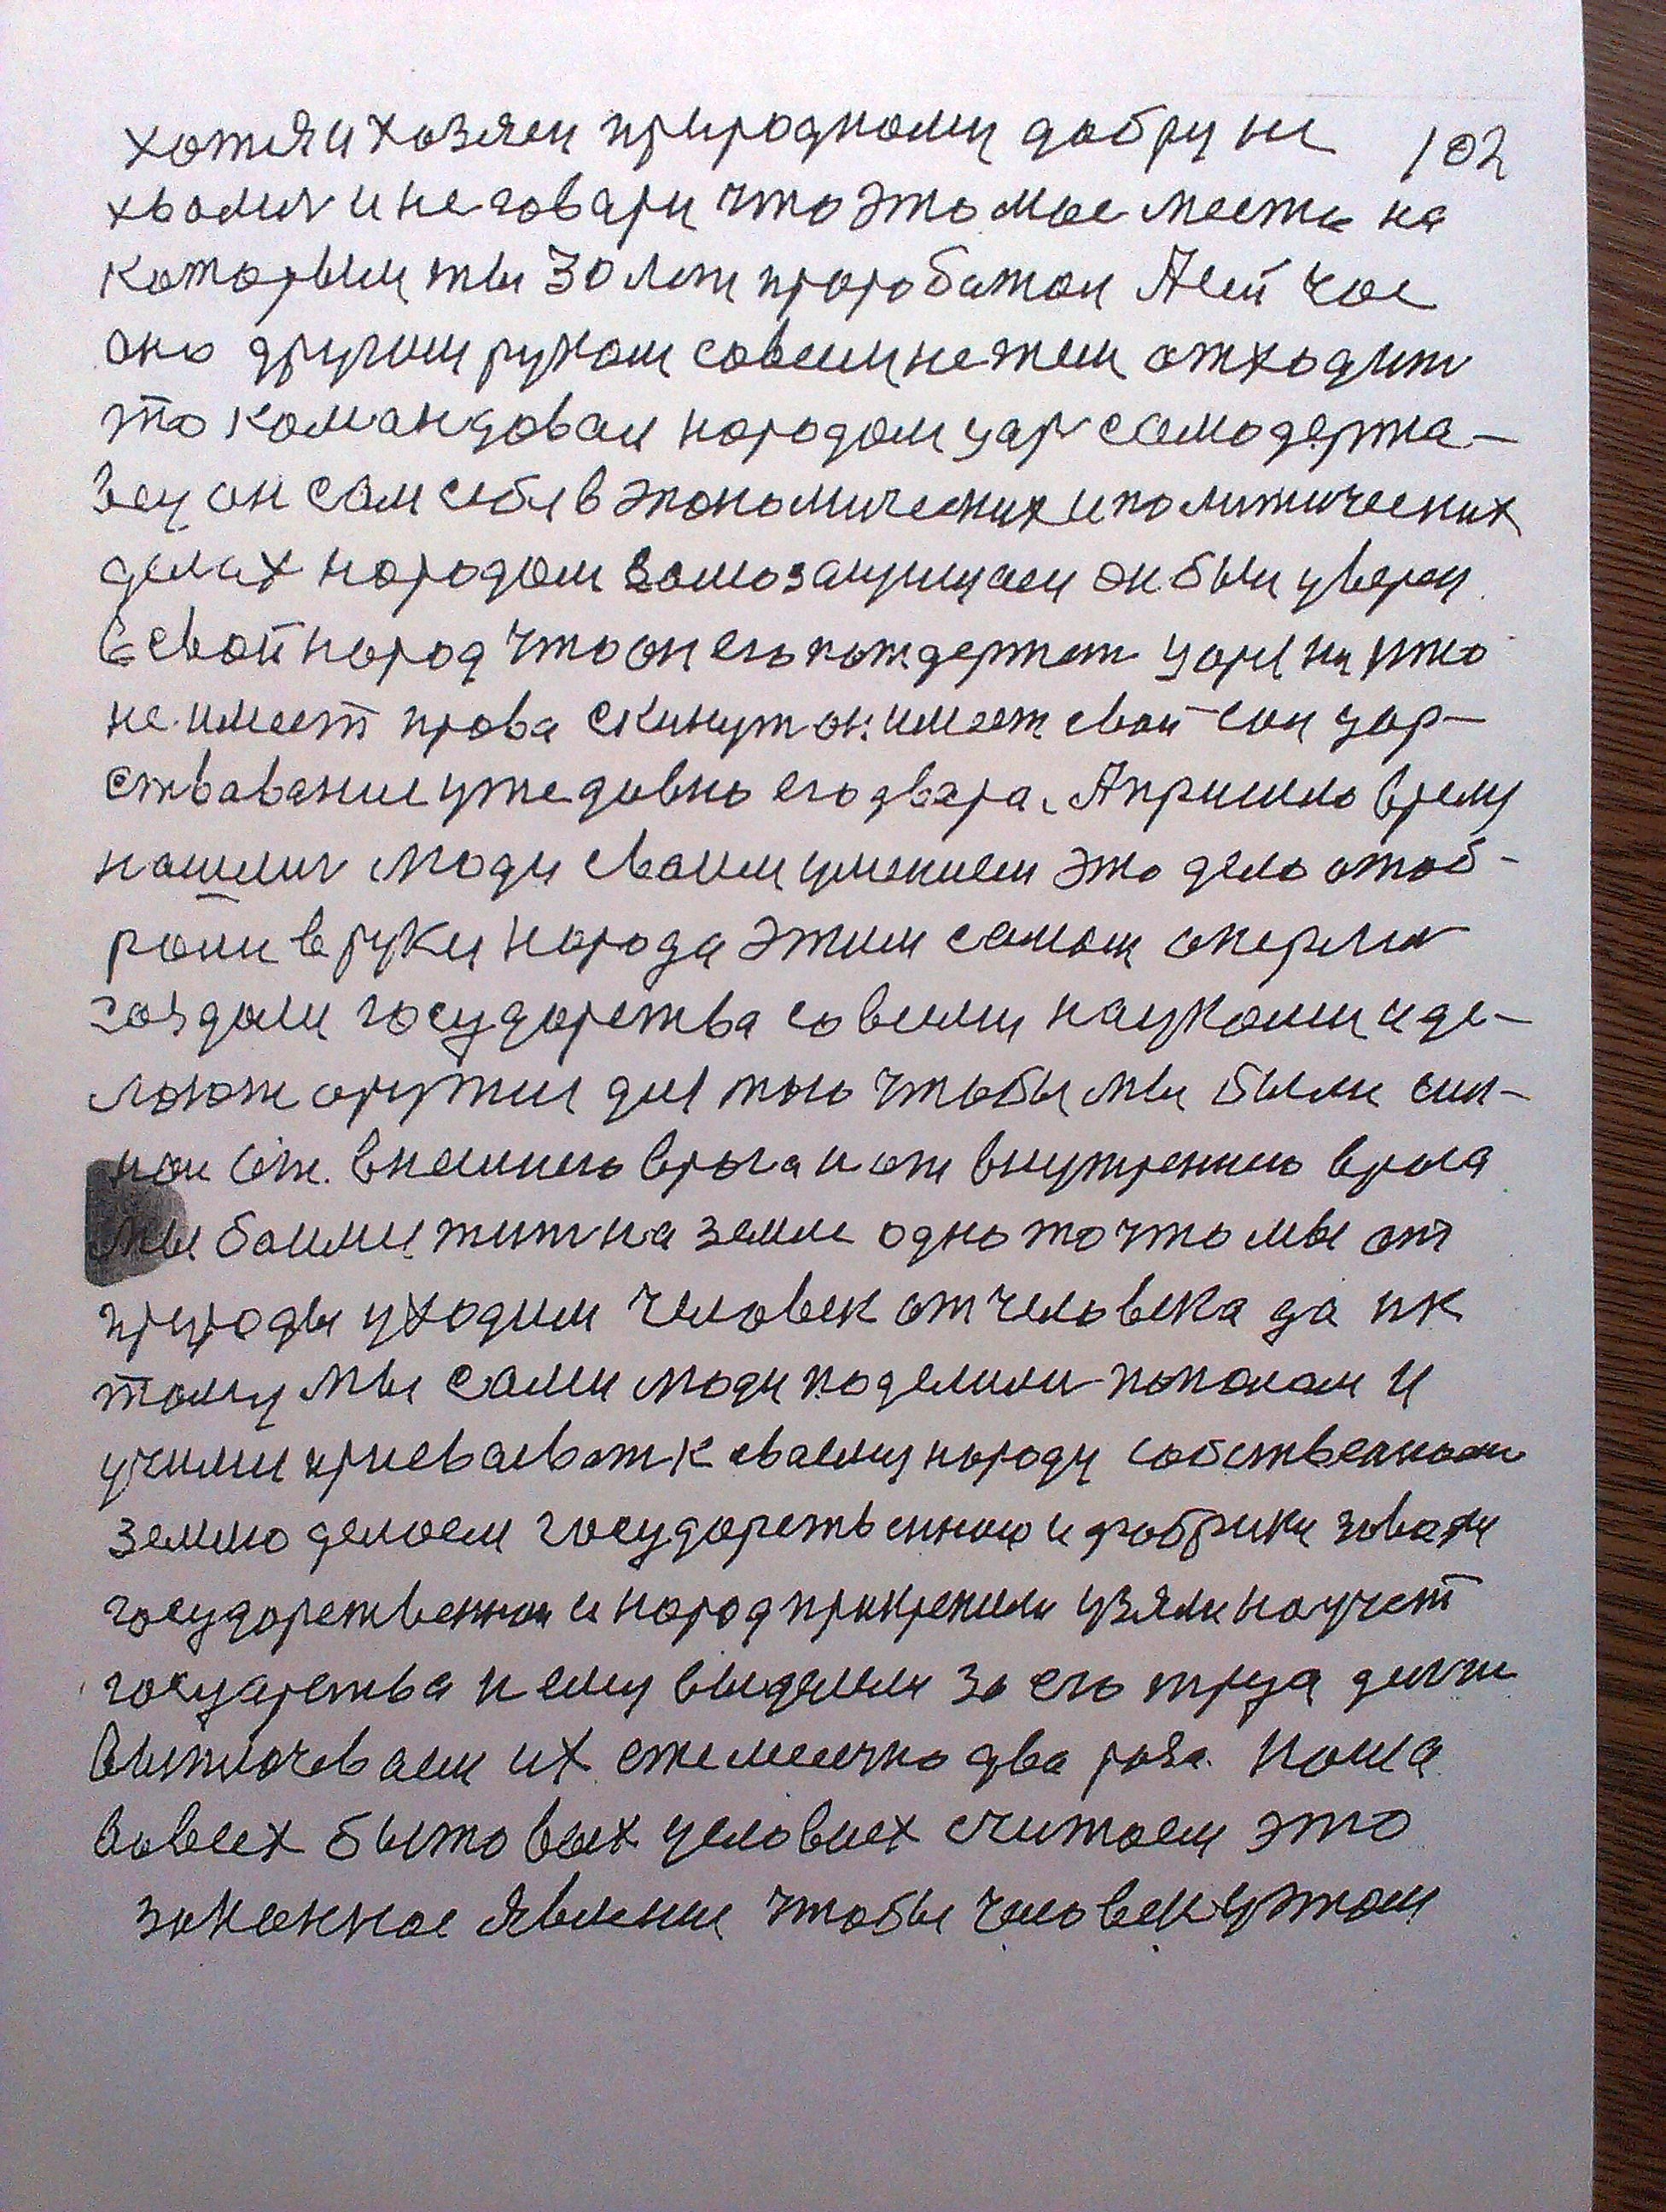 хотя и хозяен природному добру не 102
хволис и не говари что это мое место на
которым ты 30 лет проработол А сей час
оно другим руком совсем не тем отходит
то командовал народом цар самодержа-
вец он сам себя в экономических и политических
делах народом замозащищаем он был уверен
в свой народ что он его поддержет царя ни кто
не имеет права скинут он имеет свой сан цар-
ствавание уже давно его двара. А пришло время
нашлис люди своим умением это дело отоб-
роли в руки народа этим самым оперлис
создали государства со всеми наукоми и де-
лоют оружия для того чтобы мы были сил-
нои от. внешнего врага и от внутреннего врага
мы боимис жит на земле одно то что мы от
природы уходим человек от человека да и к
тому мы сами люди поделили попалам и
учили присваеват к своему народу собственности
землю делоем государственною и фабрики заводы
государственнои и народ прикрепили узяли на учет
государства и ему выделели за его труд денги
Выплочеваем их ежемесячно два роза. Наша
во всех бытовых условиех считаем это
законное явление чтобы человек у этом